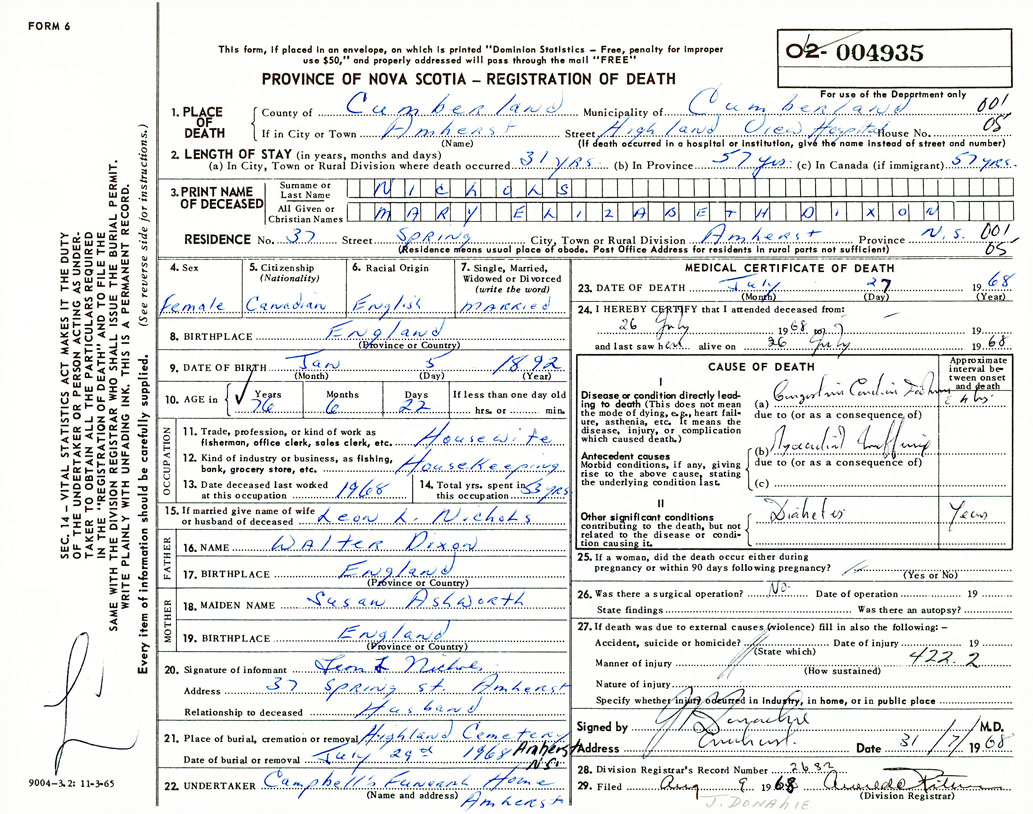 FORM 6
This form, if placed in an envelope, on which is printed "Dominion Statistics – Free, penalty for improper
use $50," and properly addressed will pass through the mail "FREE"
02- 004935
PROVINCE OF NOVA SCOTIA – REGISTRATION OF DEATH
For use of the Department only
1. PLACE OF DEATH County of Cumberland Municipality of Cumberland 001
If in City or Town Amherst Street Highland View Hospital House No. 05
(Name) (If death occurred in a hospital or institution, give the name instead of street and number)
2. LENGTH OF STAY (in years, months and days)
(a) In City, Town or Rural Division where death occurred 31 yrs (b) In Province 57 yrs. (c) In Canada (if immigrant) 57 yrs.
3. PRINT NAME OF DECEASED Surname or Last Name Nichols
All Given or Christian Names MARY ELIZABETH DIXON
RESIDENCE No. 37 Street Spring City, Town or Rural Division Amherst Province N.S. 001
(Residence means usual place of abode. Post Office Address for residents in rural parts not sufficient) 05
4. Sex Female
5. Citizenship (Nationality) Canadian
6. Racial Origin English
7. Single, Married, Widowed or Divorced (write the word) married
8. BIRTHPLACE England
(Province or Country)
9. DATE OF BIRTH Jan 5 1892
(Month) (Day) (Year)
10. AGE in Years 76 Months 6 Days 22 If less than one day old hrs. or min.
OCCUPATION
11. Trade, profession, or kind of work as fisherman, office clerk, sales clerk, etc. Housewife
12. Kind of industry or business, as fishing, bank, grocery store, etc. Housekeeping
13. Date deceased last worked at this occupation 1968
14. Total yrs. spent in this occupation 53 yrs
15. If married give name of wife or husband of deceased Leon L. Nichols
FATHER
16. NAME Walter Dixon
17. BIRTHPLACE England
(Province or Country)
MOTHER
18. MAIDEN NAME Susan Ashworth
19. BIRTHPLACE England
(Province or Country)
20. Signature of informant Leon L Nichols
Address 37 Spring St. Amherst
Relationship to deceased Husband
21. Place of burial, cremation or removal Highland Cemetery
Amherst N.S.
Date of burial or removal July 29th 1968
22. UNDERTAKER Campbell's Funeral Home
(Name and address) Amherst
MEDICAL CERTIFICATE OF DEATH
23. DATE OF DEATH July 27 1968
(Month) (Day) (Year)
24. I HEREBY CERTIFY that I attended deceased from:
26 July 1968 to 19
and last saw her alive on 26 July 1968
CAUSE OF DEATH
Approximate interval between onset and death
I
Disease or condition directly leading to death (This does not mean the mode of dying, e.g., heart failure, asthenia, etc. It means the disease, injury, or complication which caused death.)
(a) Congestive Cardiac Failure hrs.
due to (or as a consequence of)
Antecedent causes
Morbid conditions, if any, giving rise to the above cause, stating the underlying condition last.
(b) Myocardial
due to (or as a consequence of)
(c)
II
Other significant conditions contributing to the death, but not related to the disease or condition causing it.
Diabetes Years
25. If a woman, did the death occur either during
pregnancy or within 90 days following pregnancy?
(Yes or No)
26. Was there a surgical operation? No. Date of operation 19
State findings Was there an autopsy?
27. If death was due to external causes (violence) fill in also the following: –
Accident, suicide or homicide? Date of injury 19
(State which) 422.2
Manner of injury
(How sustained)
Nature of injury
Specify whether injury occurred in Industry, in home, or in public place
Signed by M.D.
Address Amherst. Date 31/7/1968
28. Division Registrar's Record Number 2682
29. Filed Aug 9 1968
(Division Registrar)
J. DONAHIE
SEC. 14 – VITAL STATISTICS ACT MAKES IT THE DUTY
OF THE UNDERTAKER OR PERSON ACTING AS UNDER-
TAKER TO OBTAIN ALL THE PARTICULARS REQUIRED
IN THE "REGISTRATION OF DEATH" AND TO FILE THE
SAME WITH THE DIVISION REGISTRAR WHO SHALL ISSUE THE BURIAL PERMIT.
WRITE PLAINLY WITH UNFADING INK. THIS IS A PERMANENT RECORD.
Every item of information should be carefully supplied. (See reverse side for instructions.)
9004-3.2: 11-3-65